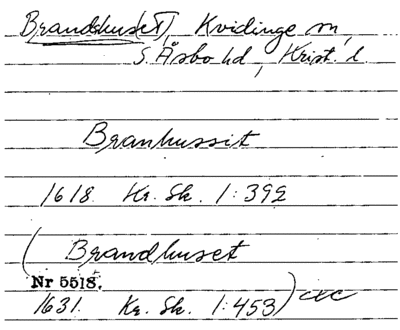 Brandshuset, Kvidinge sn,
S. Åsbo hd, Krist. l.
Branhussit
1618. Kr. Sk. 1:392
(Brandhuset
Nr 5518.
1631. Kr. Sk. 1:453)